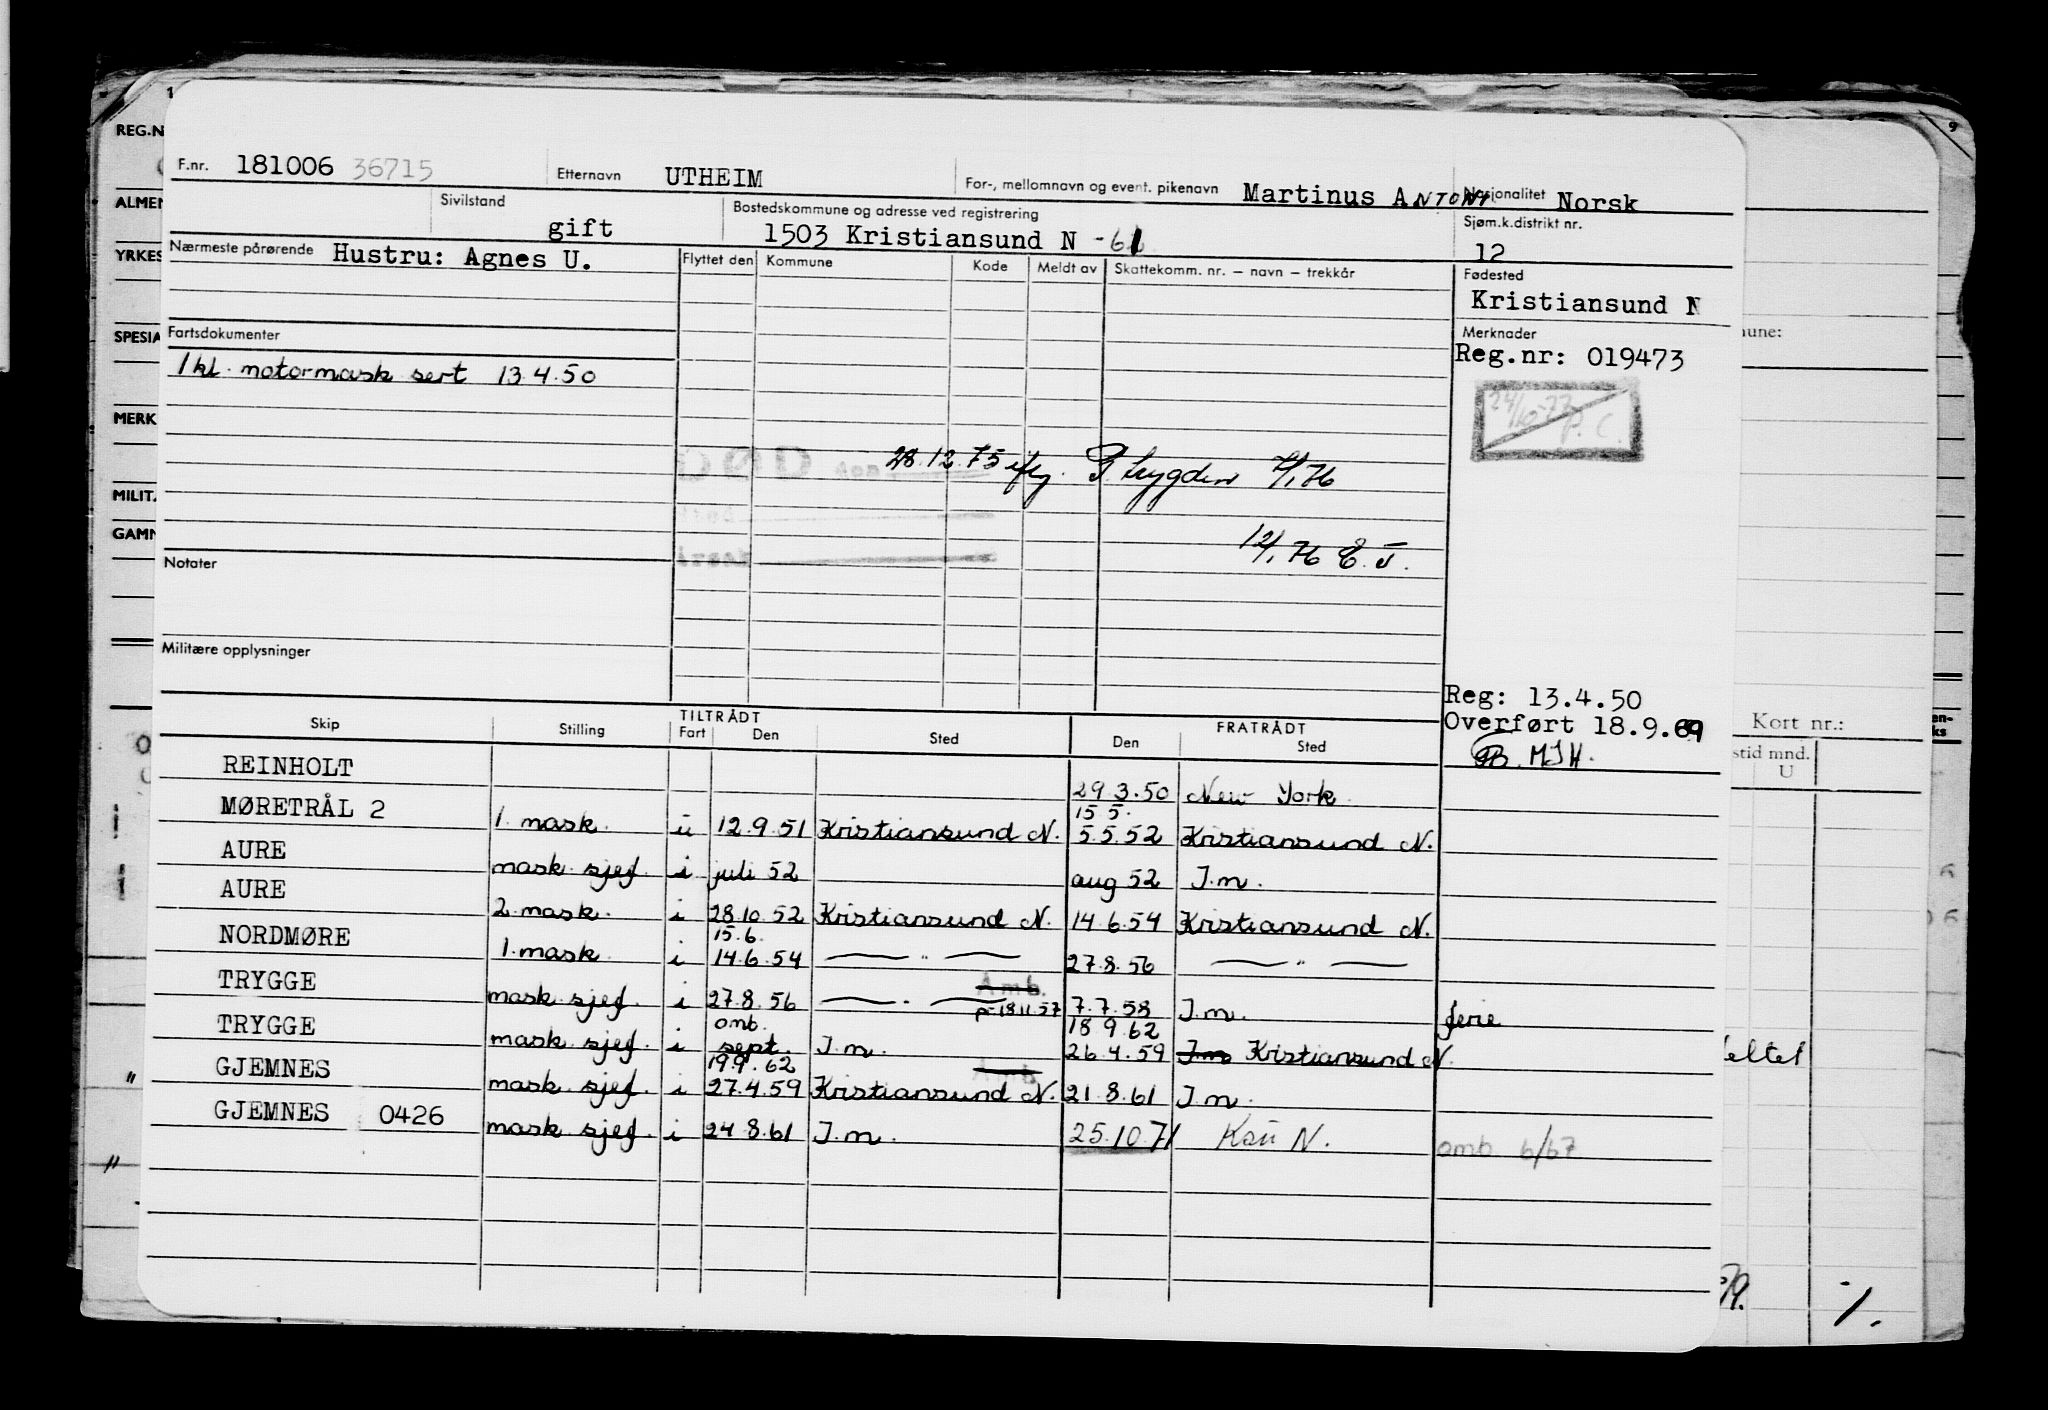 F.nr. 181006 36715 Etternavn UTHEIM For-, mellomnavn og event. pikenavn Martinus ANTONI Nasjonalitet Norsk
Sivilstand gift Bostedskommune og adresse ved registrering 1503 Kristiansund N -61 Sjøm.k.distrikt nr. 12
Nærmeste pårørende Hustru: Agnes U. Flyttet den Kommune Kode Meldt av Skattekomm. nr. – navn – trekkår Fødested
Kristiansund N
Fartsdokumenter Merknader
Reg.nr: 019473
1 kl. motormask sert 13.4.50
24/10-77 P.C.
28.12.75 iflg. P. trygden 7/1 76
12/1 76 E.J.
Notater
Militære opplysninger
Reg: 13.4.50
Overført 18.9.69
MJH.
Skip Stilling TILTRÅDT Fart Den Sted FRATRÅDT Den Sted
REINHOLT 29.3.50 New York
MØRETRÅL 2 1. mask. u 12.9.51 Kristiansund N. 15.5. 5.5.52 Kristiansund N.
AURE mask sjef. i juli 52 aug 52 I.m.
AURE 2. mask. i 28.10.52 Kristiansund N. 14.6.54 Kristiansund N.
NORDMØRE 1. mask. i 15.6. 14.6.54 — " — 27.8.56 — " —
TRYGGE mask sjef. i 27.8.56 — " — Amb. p-18.11.57 7.7.58 I.m. ferie
TRYGGE mask sjef. i omb. sept. I.m. 18.9.62 26.4.59 I.m. Kristiansund N.
GJEMNES mask sjef. i 19.9.62 27.4.59 Kristiansund N. 21.8.61 I.m.
GJEMNES 0426 mask sjef. i 24.8.61 I.m. 25.10.71 Ksu N. omb 6/67
REG.N
ALMEN
YRKES
SPESIA
MERK
MILIT.
GAMN
une:
Kort nr.:
stid mnd.
U
en-
ks
eltet
9